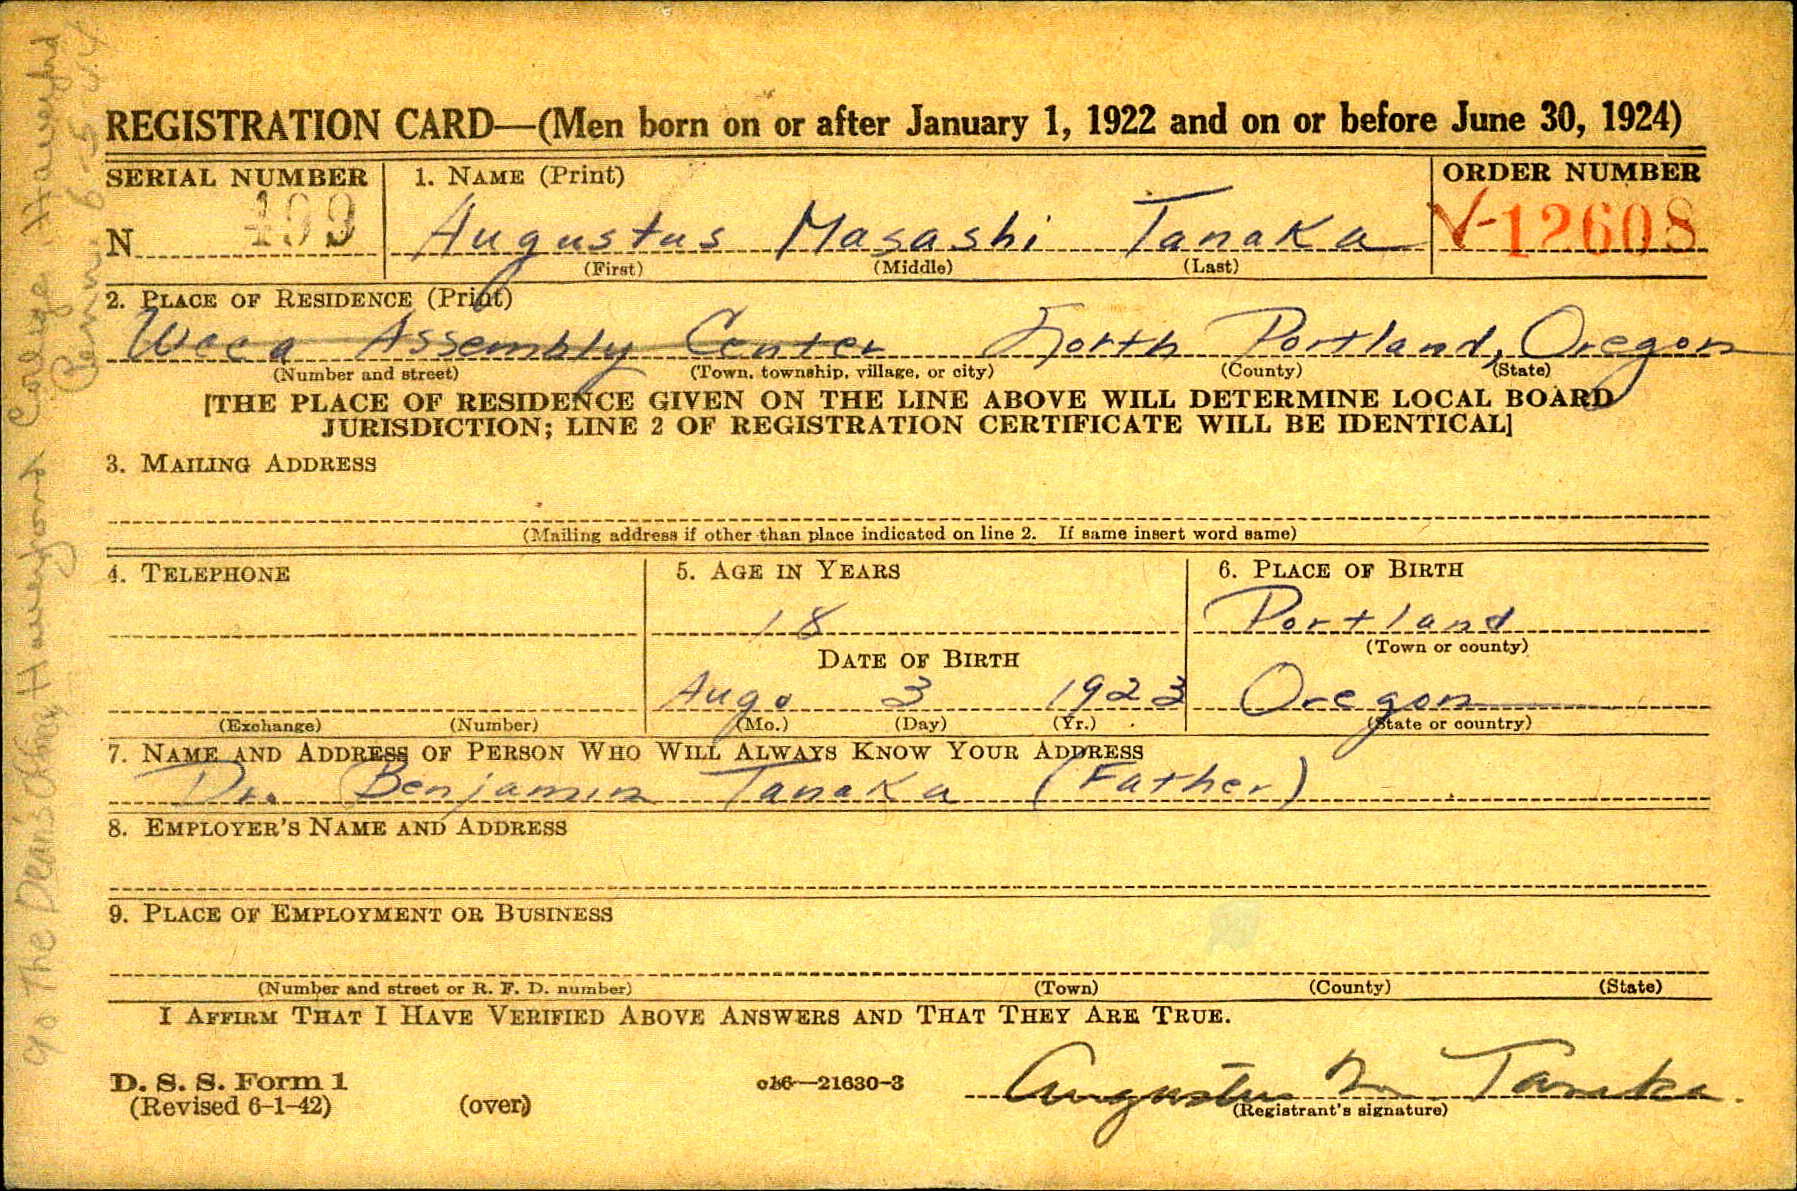 REGISTRATION CARD—(Men born on or after January 1, 1922 and on or before June 30, 1924)
SERIAL NUMBER
1. NAME (Print)
ORDER NUMBER
N 499
Augustus Masashi Tanaka
12608
(First) (Middle) (Last)
2. PLACE OF RESIDENCE (Print)
Wcca Assembly Center North Portland, Oregon
(Number and street) (Town, township, village, or city) (County) (State)
[THE PLACE OF RESIDENCE GIVEN ON THE LINE ABOVE WILL DETERMINE LOCAL BOARD
JURISDICTION; LINE 2 OF REGISTRATION CERTIFICATE WILL BE IDENTICAL]
3. MAILING ADDRESS
(Mailing address if other than place indicated on line 2. If same insert word same)
4. TELEPHONE
5. AGE IN YEARS
6. PLACE OF BIRTH
18
Portland
(Town or county)
DATE OF BIRTH
Aug. 3 1923
Oregon
(Exchange) (Number)
(Mo.) (Day) (Yr.)
(State or country)
7. NAME AND ADDRESS OF PERSON WHO WILL ALWAYS KNOW YOUR ADDRESS
Dr. Benjamin Tanaka (Father)
8. EMPLOYER'S NAME AND ADDRESS
9. PLACE OF EMPLOYMENT OR BUSINESS
(Number and street or R. F. D. number) (Town) (County) (State)
I AFFIRM THAT I HAVE VERIFIED ABOVE ANSWERS AND THAT THEY ARE TRUE.
D. S. S. Form 1
(Revised 6-1-42)
(over)
16—21630-3
Augustus M. Tanaka
(Registrant's signature)
The Dean's Office, Haverford College Haverford
Penn. 6-5-44